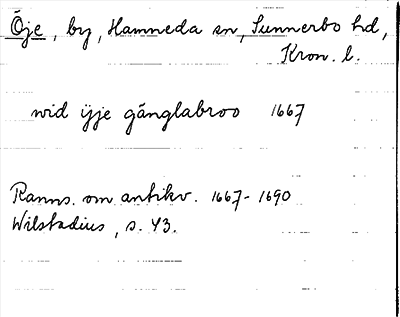 Öje, by, Hamneda sn, Sunnerbo hd,
Kron. l.
wid ÿje gånglabroo 1667
Ranns. om antikv. 1667-1690
Wilstadius, s. 43.